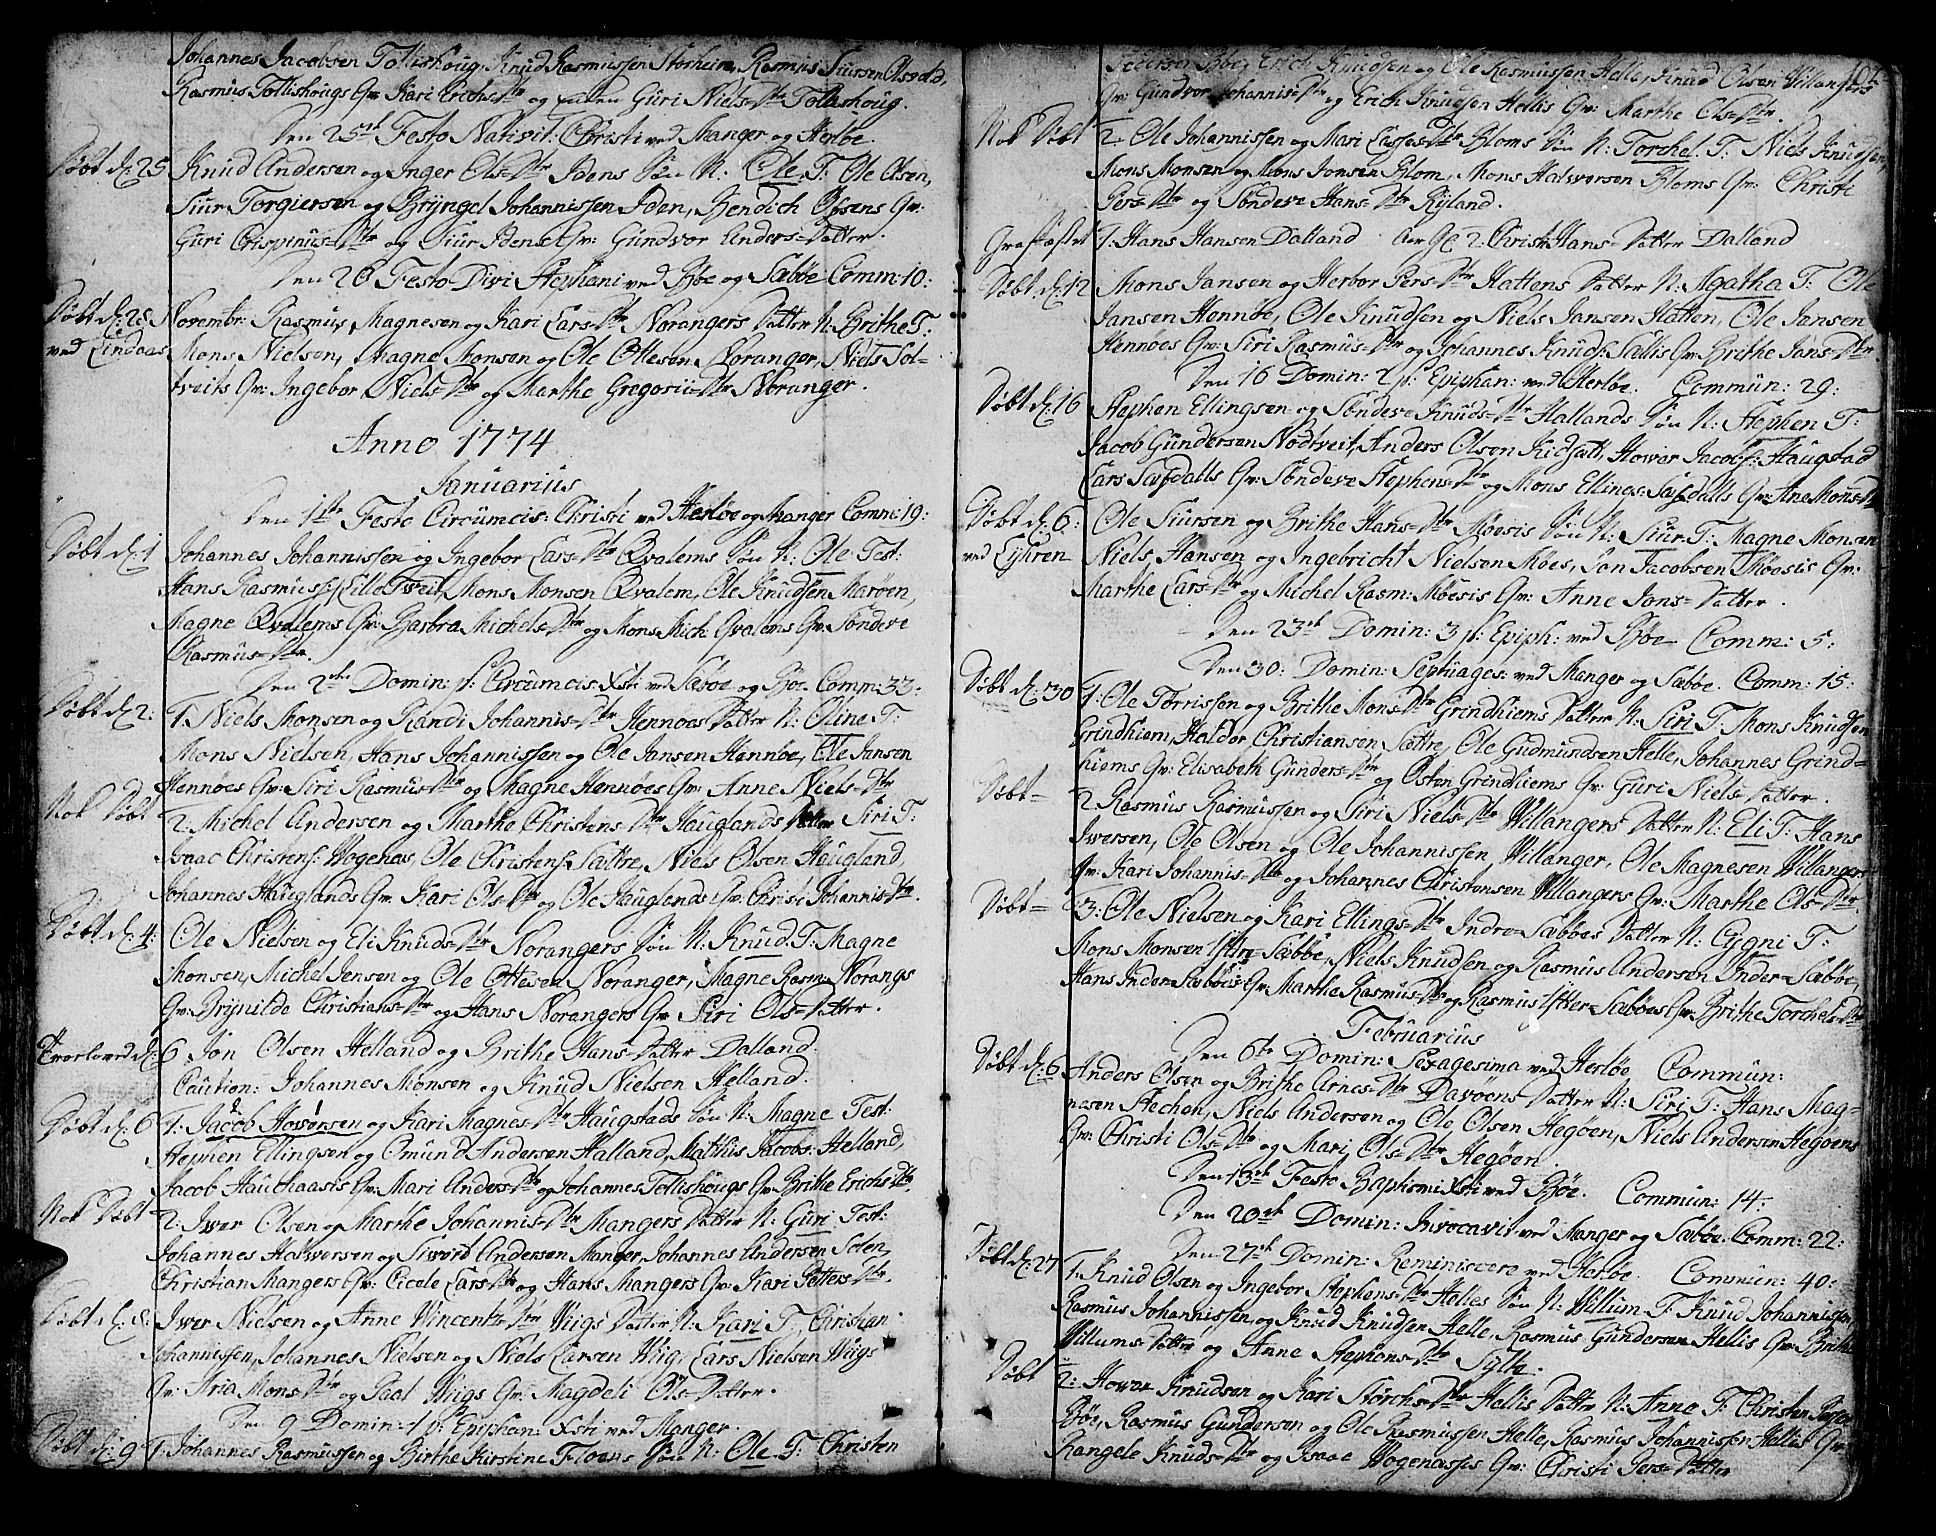 Johannes Jacobsen Tollishoug, Knud Rasmussen Storheim, Rasmus Siursen Olsvold,
Rasmus Tollishougs Qv: Kari Erichs=Dtr og Guri Niels=Dtr Tollishoug.
Den 25de Festo Nativit: Christi ved Manger og Herløe.
Døbt d: 25 Knud Andersen og Inger Ols=Dtr Idens Søn N: Ole T: Ole Olsen,
Siur Torgiersen og Bryngel Johannissen Iden, Bendich Olsens Qv:
Guri Crispinus=Dtr og Siur Idens Qv: Gundvor Anders=Datter.
Den 26 Festo Divi Stephani ved Bøe og Sæbøe Comm: 10:
Døbt d: 28 Novembr: Rasmus Magnesen og Kari Lars=Dtr Norangers Datter N: Brithe T:
ved Lindaas Mons Nielsen, Magne Monsen og Ole Ottesen Noranger, Niels Sol=
tveits Qv: Ingebor Niels=Dtr og Marthe Gregorii=Dtr Noranger.
Anno 1774
Januarius
Den 1ste Festo Circumcis: Christi ved Herløe og Manger Comm: 19:
Døbt d: 1 Johannes Johannissen og Ingebor Lars=Dtr Qvalems Søn N: Ole Test:
Hans Rasmuss: Lille Tveit, Mons Monsen Qvalem, Ole Knudsen Marøen,
Magne Qvalems Qv: Barbra Michels=Dtr og Mons Mich: Qvalems Qv: Søndeve
Rasmus=Dtr.
Den 2den Domin: p: Circumcis: Xsti ved Sæbøe og Bøe. Comm: 33:
Døbt d: 2: 1: Niels Monsen og Randi Johannis=Dtr Hennøes Datter N: Oline T:
Mons Nielsen, Hans Johannissen og Ole Jansen Hennøe, Ole Jansen
Hennøes Qv: Siri Rasmus=Dtr og Magne Hennøes Qv: Anne Niels=Dtr
Nok Døbt 2: Michel Andersen og Marthe Christens=Dtr Hauglands Datter Siri T:
Isaac Christens: Wogenæs, Ole Christens: Sættre, Niels Olsen Haugland,
Johannes Hauglands Qv: Kari Ols=Dtr og Ole Hauglends Qv: Christi Johannis=Dtr.
Døbt d: 4: Ole Nielsen og Eli Knuds=Dtr Norangers Søn N: Knud T: Magne
Monsen, Michel Jensen og Ole Ottesen Noranger, Magne Rasm: Norangs
Qv: Brynilde Christians=Dtr og Hans Norangers Qv: Siri Ols=Datter.
Trorloved d: 6 Jon Olsen Helland og Brithe Hans=Datter Dalland.
Caution: Johannes Monsen og Knud Nielsen Helland.
Døbt d: 6 1: Jacob Howorsen og Kari Magnes=Dtr Haugstads Søn N: Magne Test:
Stephen Ellingsen og Omund Andersen Halland, Mathis Jacobs: Helland,
Jacob Haukaasis Qv: Mari Anders=Dtr og Johannes Tollishougs Qv: Brithe Erichs=Dtr.
Nok Døbt 2: Iwer Olsen og Marthe Johannis=Dtr Mangers Datter N: Guri Test:
Johannes Halworsen og Siword Andersen Manger, Johannes Andersen Solen,
Christian Mangers Qv: Cicele Lars=Dtr og Hans Mangers Qv: Kari Petters=Dtr.
Døbt d: 8: Iwer Nielsen og Anne Vincents=Dtr Wiigs Datter N: Kari T: Christian
Johannissen, Johannes Nielsen og Niels Larsen Wiig, Lars Nielsen Wiigs
Qv: Aria Mons=Dtr og Paal Wiigs Qv: Magdeli Ols=Datter.
Den 9 Domin: 1 p: Epiphan: Xsti ved Manger.
Døbt d: 9 1: Johannes Rasmussen og Birthe Kirstine Floens Søn N: Ole. T: Christen
102
Pedersen Bøe, Erich Knudsen og Ole Rasmussen Helle, Knud Olsen Villangers
Qv: Gundvor Johannis=Dtr og Erich Knudsen Hellis Qv: Marthe Ols=Dtr.
Nok Døbt 2: Ole Johannissen og Mari Lasses=Dtr Bloms Søn N: Torchel. T: Niels Knudsen,
Mons Monsen og Mons Jonsen Blom, Mons Halworsen Bloms Qv: Christi
Pers=Dtr og Søndeve Hans=Dtr Ryland.
Graffæstet 1: Hans Hansen Dalland 2: Christi Hans=Datter Dalland
Døbt d: 12 Mons Jansen og Herbor Pers=Dtr Hattens Datter N: Agatha T: Ole
Jansen Hennøe, Ole Knudsen og Niels Jansen Hatten, Ole Jansen
Hennøes Qv: Siri Rasmus=Dtr og Johannes Knuds: Sællis Qv: Brithe Jans=Dtr.
Den 16 Domin: 2 p: Epiphan: ved Herløe. Commun: 29:
Døbt d: 16 Stephen Ellingsen og Søndeve Knuds=Dtr Hallands Søn N: Stephen T:
Jacob Gundersen Nodtveit, Anders Olsen Kidsætt, Howar Jacobs: Haugstad
Lars Qv: Søndeve Stephens=Dtr og Mons Ellings: Qv: Ane Mons=Dtr
Døbt d: 6: Ole Siursen og Brithe Hans=Dtr Møesis Søn N: Siur T: Magne Monsen
ved Niels Hansen og Ingebricht Nielsen Møes, Jon Jacobsen Møesis Qv:
Marthe Lars=Dtr og Michel Rasm: Møesis Qv: Anne Jons=Datter.
Den 23de Domin: 3 p: Epiph: ved Bøe Comm: 5:
Den 30: Domin: Septuages: ved Manger og Sæbøe. Comm: 15:
Døbt d: 30 1: Ole Torrissen og Brithe Mons=Dtr Grindhiems Datter N: Siri T: Mons Knudsen
Grindhiem, Haldor Christiansen Sættre, Ole Gudmundsen Helle, Johannes Grind=
hiems Qv: Elisabeth Gunders=Dtr og Østen Grindhiems Qv: Guri Niels=Datter.
Døbt= 2 Rasmus Rasmussen og Siri Niels=Dtr Willangers Datter N: Eli T: Hans
Iwersen, Ole Olsen og Ole Johannissen Willanger, Ole Magnesen Willangers
Qv: Kari Johannis=Dtr og Johannes Christensen Willangers Qv: Marthe Ols=Dtr.
Døbt= 3: Ole Nielsen og Kari Ellings=Dtr Indre=Sæbøes Datter N: Gygni T:
Mons Monsen Sæbøe, Niels Knudsen og Rasmus Andersen Inder=Sæbøe,
Hans Inder=Sæbøes Qv: Marthe Rasmus=Dtr og Rasmus Ytter=Sæbøes Qv: Brithe Torchels=Dtr
Februarius
Den 6te Domin: Sexagesima ved Herløe Commun:
Døbt d: 6 Anders Olsen og Brithe Arnes=Dtr Davøens Datter N: Siri T: Hans Mag=
nesen Niels Andersen og Ole Olsen Hegøen, Niels Andersen Hegøens
Qv: Christi Ols=Dtr og Mari Ols=Dtr Hegøen
Den 13de Festo Baptismi Xsti ved Bøe. Commun: 14:
Den 20de Domin: Invocavit ved Manger og Sæbøe. Comm: 22:
Den 27de Domin: Reminiscere ved Herløe. Commun: 40:
Døbt d: 27 1: Knud Olsen og Ingebor Stephens=Dtr Helles Søn N: Willum T: Knud Johannissen,
Rasmus Johannissen, og Knud Knudsen Helle, Rasmus Gundersen Hellis Qv: Brithe
Willums=Datter og Anne Stephens=Dtr Sylte.
Døbt 2: Howar Knudsen og Kari Størchs=Dtr Hellis Datter N: Anne T: Christen
Bøe, Rasmus Gundersen og Ole Rasmussen Helle, Rasmus Johannissen Hellis Qv:
Rangele Knuds=Dtr og Isaac Wogenæsses Qv: Christi Pers=Datter